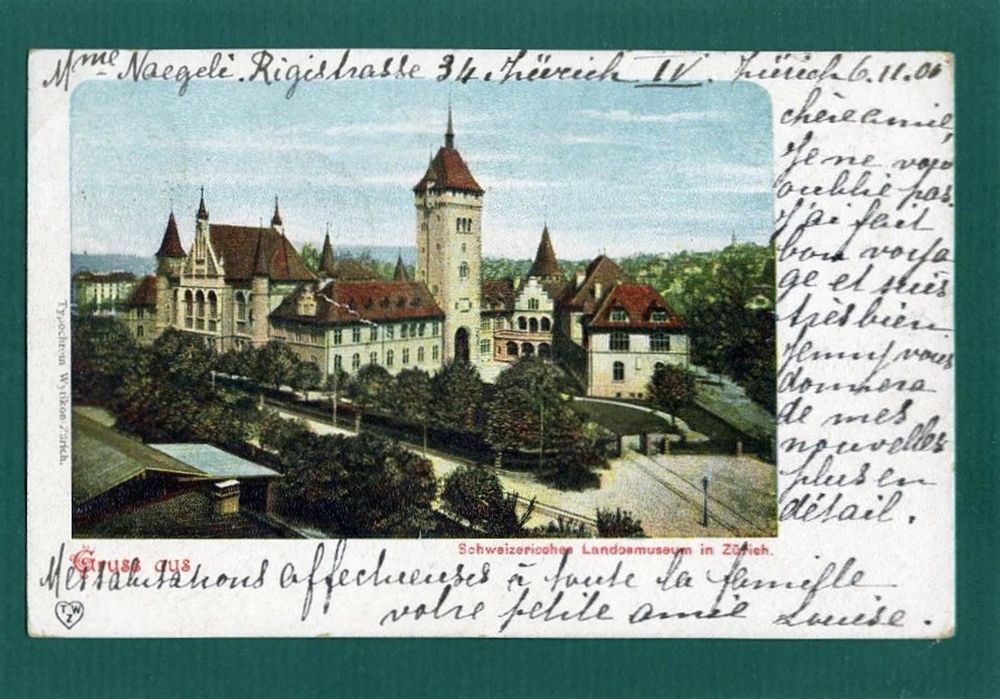 Mme Naegeli. Rigistrasse 34 Zürich IV. Zürich 6.11.01
chère amie,
Je ne vous
oublie pas.
J'ai fait
bon voya
ge et suis
très bien
Jenny vous
donnera
de mes
nouvelles
plus en
détail.
Typochrom Wytikon-Zürich.
Schweizerisches Landesmuseum in Zürich.
Gruss aus
Mes salutations affectueuses à toute la famille
votre petite amie Louise.
T W
Z